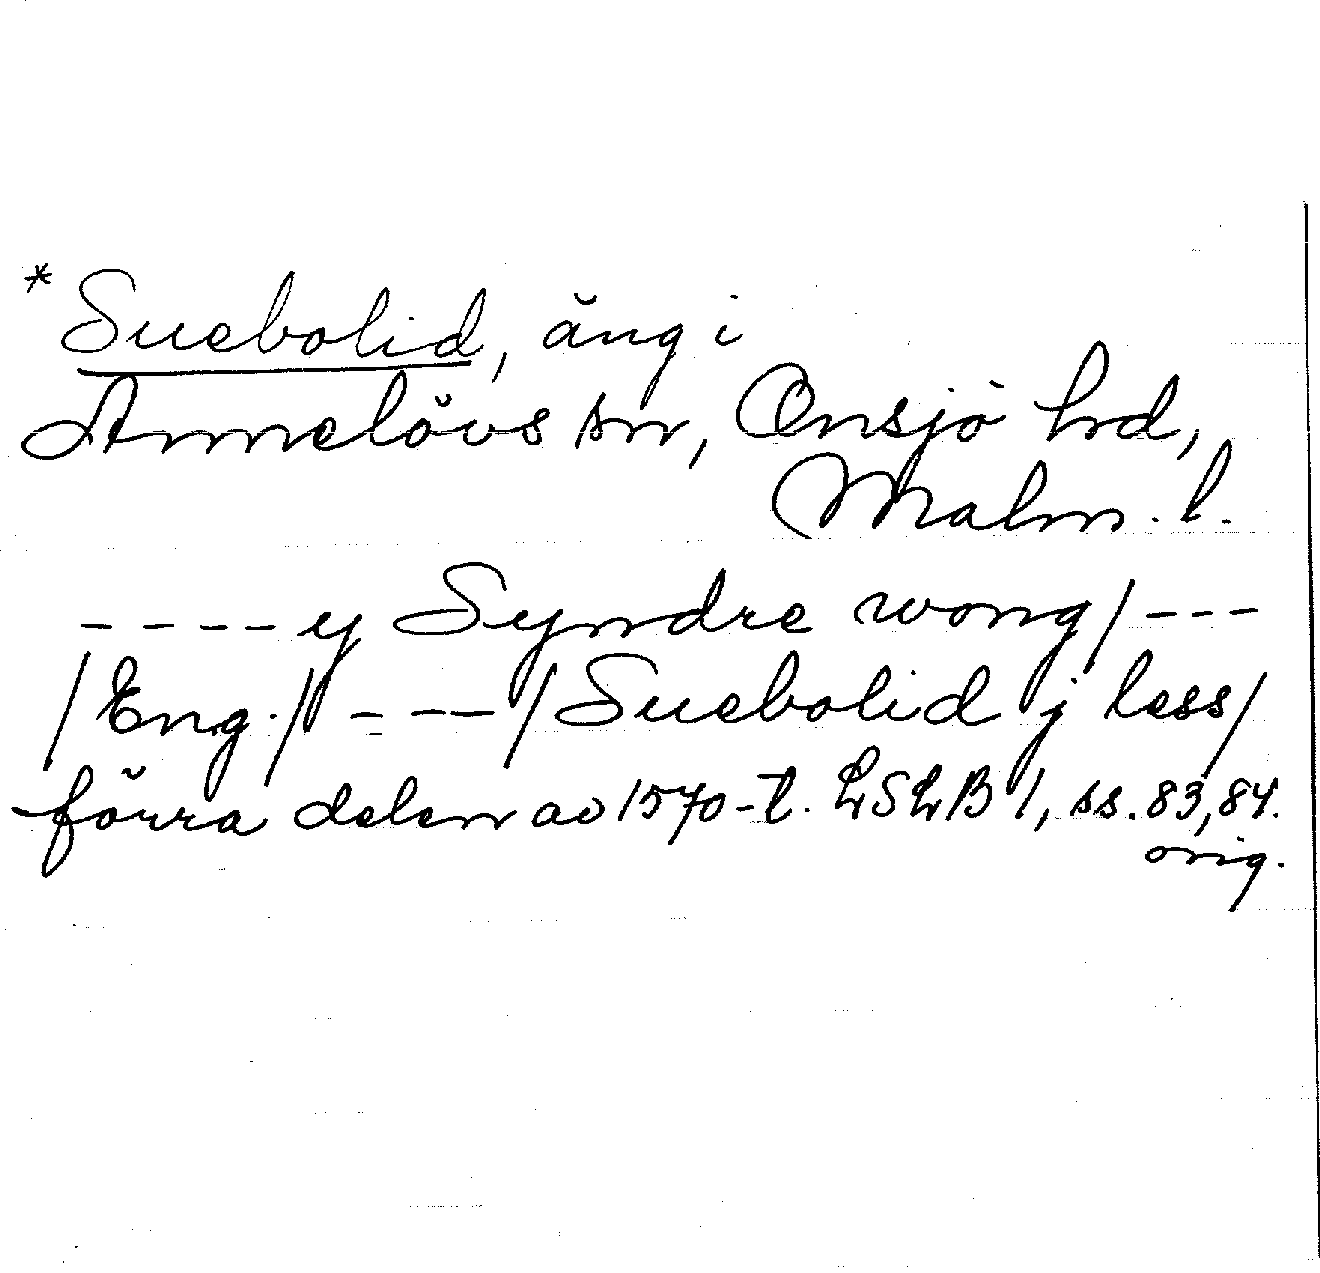 *Suebolid, äng i
Annelövs sn, Onsjö hd,
Malm. l.
---- y Syndre wong/---
/Eng./ ----/Suebolid j less/
förra delen av 1570-t. LSLB 1, ss. 83, 84.
orig.